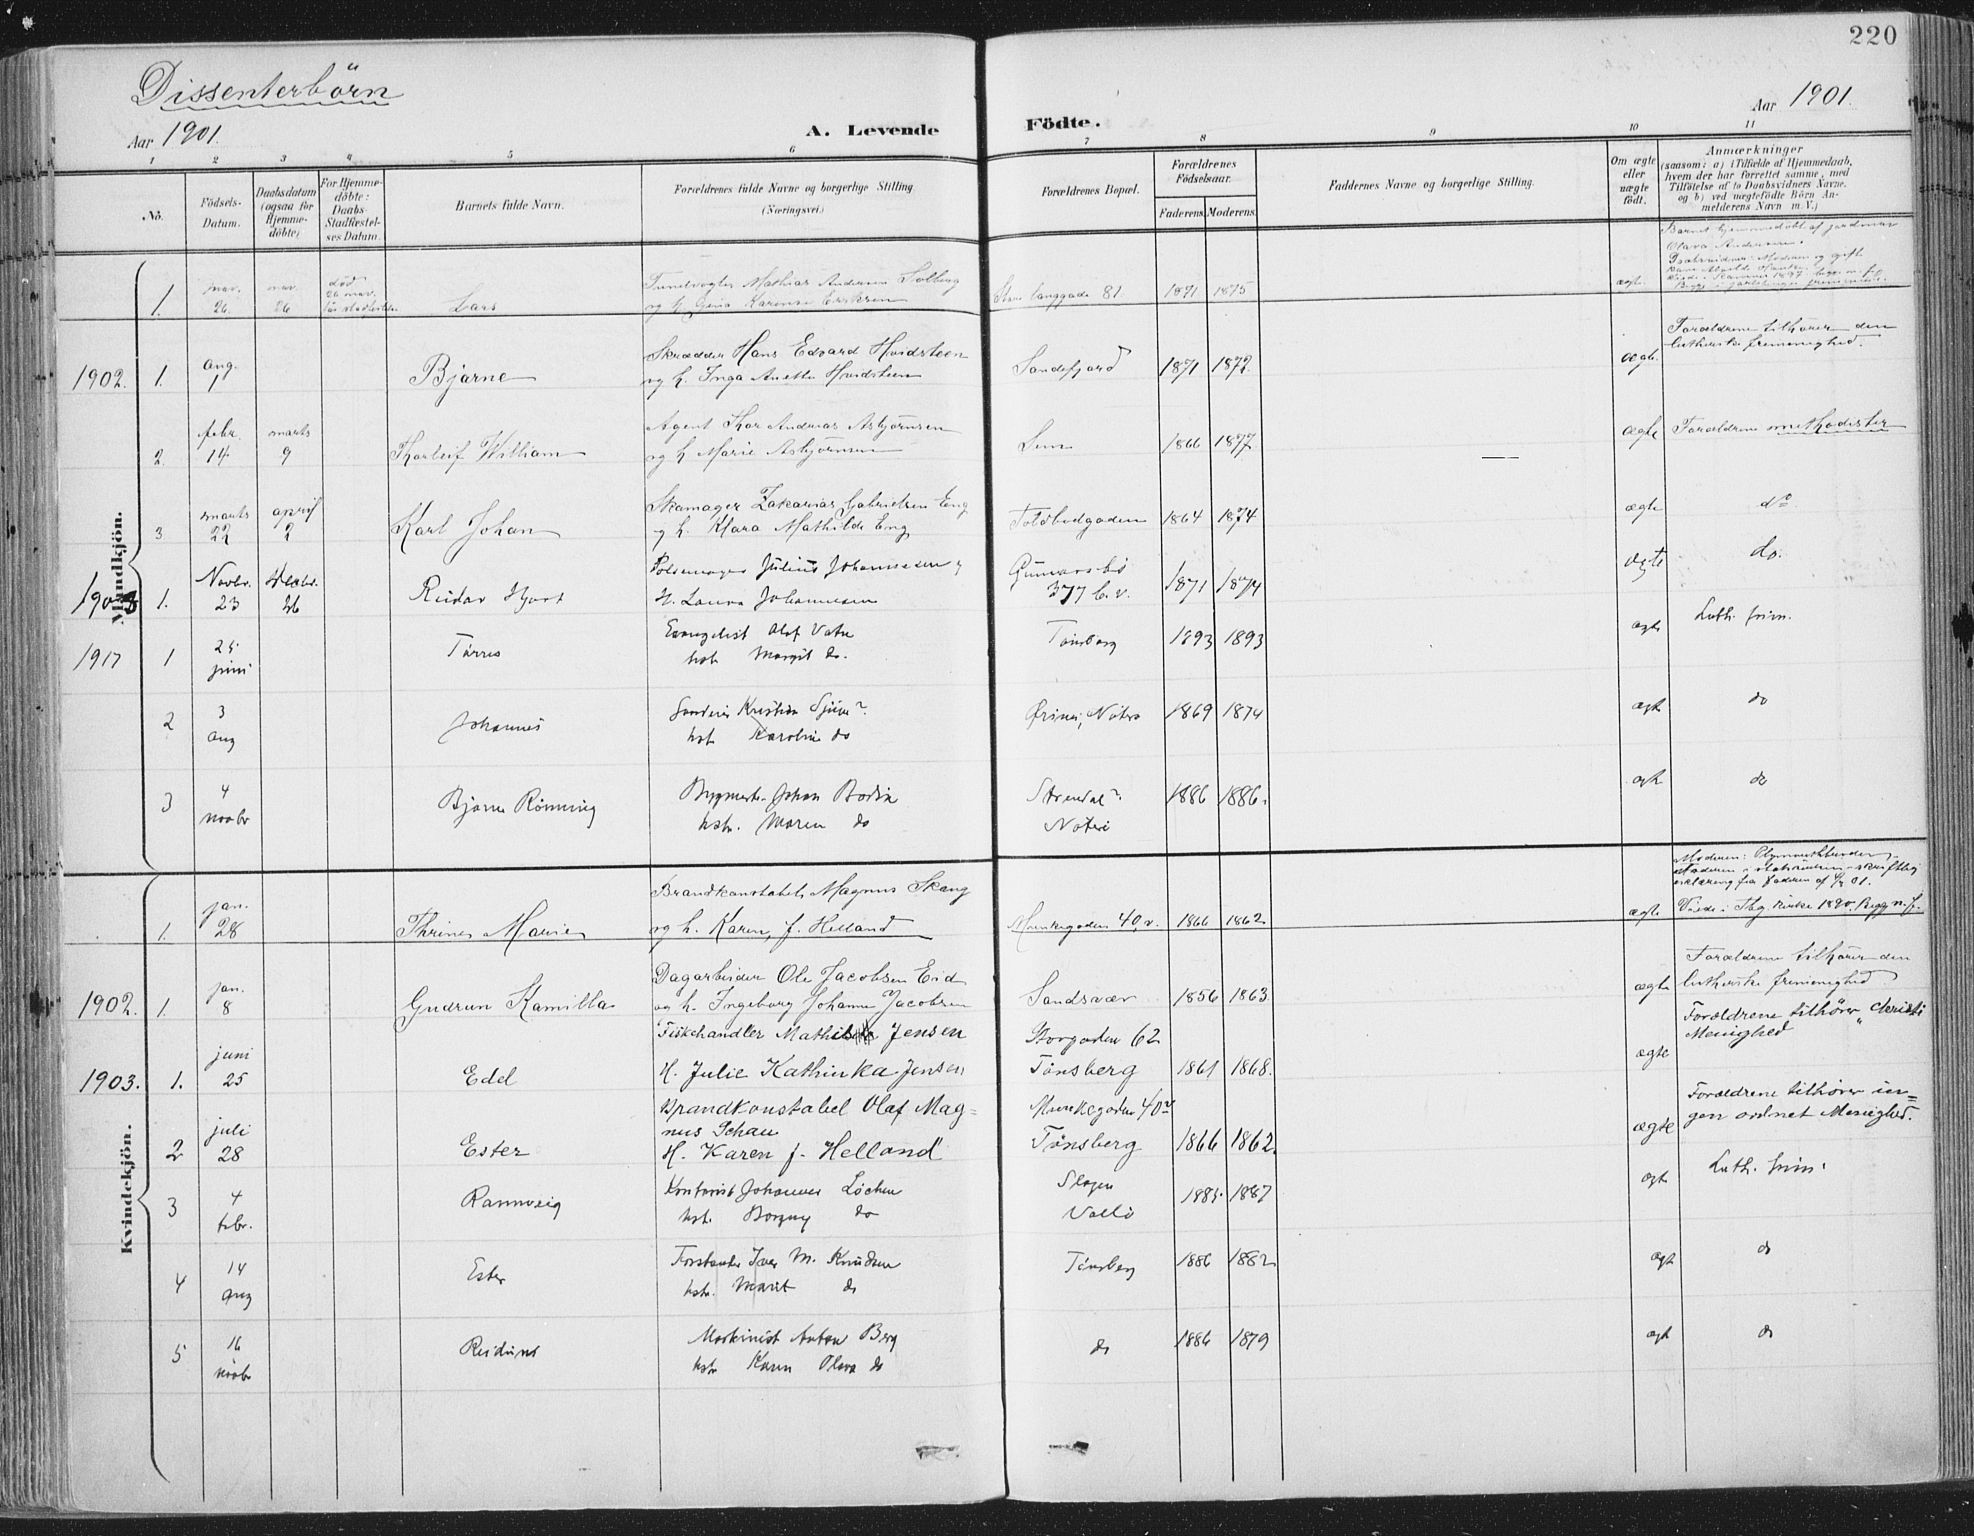 220
Dissenterbörn
Aar 1901.
A. Levende
Födte.
Aar 1901.
1 2 3 4 5 6 7 8 9 10 11
No.
Födsels-
Datum.
Daabsdatum
(ogsaa for
Hjemme-
döbte)
For Hjemme-
döbte:
Daabs-
Stadfæstel-
ses Datum.
Barnets fulde Navn.
Forældrenes fulde Navne og borgerlige Stilling
(Næringsvei.)
Forældrenes Bopæl.
Forældrenes
Födselsaar.
Faderens. Moderens.
Faddernes Navne og borgerlige Stilling.
Om ægte
eller
uægte
födt.
Anmærkninger
(saasom: a) i Tilfælde af Hjemmedaab,
hvem der har forrettet samme, med
Tilföielse af to Daabsvidners Navne,
og b) ved uægtefödte Börn An-
melderens Navn m. V.)
Mandkjön.
1. mar. 26. mar. 26 död 26 mar. Lars
Mathias Andersen Solberg
og h. Karense Eriksen
Langgade 81 1871 1875 ægte
Barnet hjemmedöbt af jordmor
Olava Andersen.
1902. 1. aug. 1 Bjarne
Skrædder Hans Edvard Hvidsteen
og h. Inga Anette Hvidsteen
Sandefjord 1871 1872. ægte
Forældrene tilhörer den
lutherske frimenighed.
2. febr. 14 marts 9 Thorleif William
Agent Thor Andreas Asbjörnsen
og h. Marie Asbjörnsen
Sem 1866 1877 ægte
Forældrene methodister
3 marts 22 april 2 Karl Johan
Skomager Zakarias Gabrielsen Eng
og h. Klara Mathilde Eng
Toldbodgaden 1864 1874 ægte do.
1903 1. Novbr. 23 26 Reidar Hjort
Pølsemager Julius Johannesen og
H. Laura Johannesen
Gunnarsbö
377 b. v. 1871 1874 ægte do.
1917 1 25. juni Tarres
Evangelist Olaf Vatne
hst. Margit do.
Tönsberg 1893 1893 ægte Luth. frim.
2 3 aug Johannes
Kristian
hst. Karoline do
Nöterö 1869 1874 ægte do
3 4 novbr Bjarne Rönning
Bygmester Johan Bodin
hstr. Maren do
Nöterö 1886 1886. ægte do
Kvindekjön.
1. jan. 28 Thrine Marie
Brandkonstabel Magnus Skaug
og h. Karen, f. Helland
Munkegaden 40, v. 1866 1862 ægte
1902. 1. jan. 8 Gudrun Kamilla
Dagarbeider Ole Jacobsen Eid
og h. Ingeborg Johanne Jacobsen
Sandsvær 1856 1863 ægte
Forældrene tilhörer den
lutherske frimenighed
1903. 1. juni 25 Edel
Fiskehandler Jensen
H. Julie Kathinka Jensen
Storgaden 62
Tønsberg 1861 1868. ægte
Forældrene tilhører "Christi
Menighed
2 juli 28 Ester
Brandkonstabel Olaf Mag=
nus Schau
H. Karen f. Helland
Munkegaden 40 v
Tønsberg 1866 1862. ægte
Forældrene tilhører in=
gen ordnet Menighed.
3 4 febr. Rannveig
Kontorist Johannes Löchen
hst. Borgny do
Slagen
Vallö 1885. 1887 ægte Luth. frim.
4 14 aug Ester
Forstander Iver M. Knudsen
hstr. Marit do
Tönsberg 1886 1882 ægte do
5 16 novbr Reidun
Maskinist Anton Berg
hstr Karen Olava do
do 1886 1879 ægte do